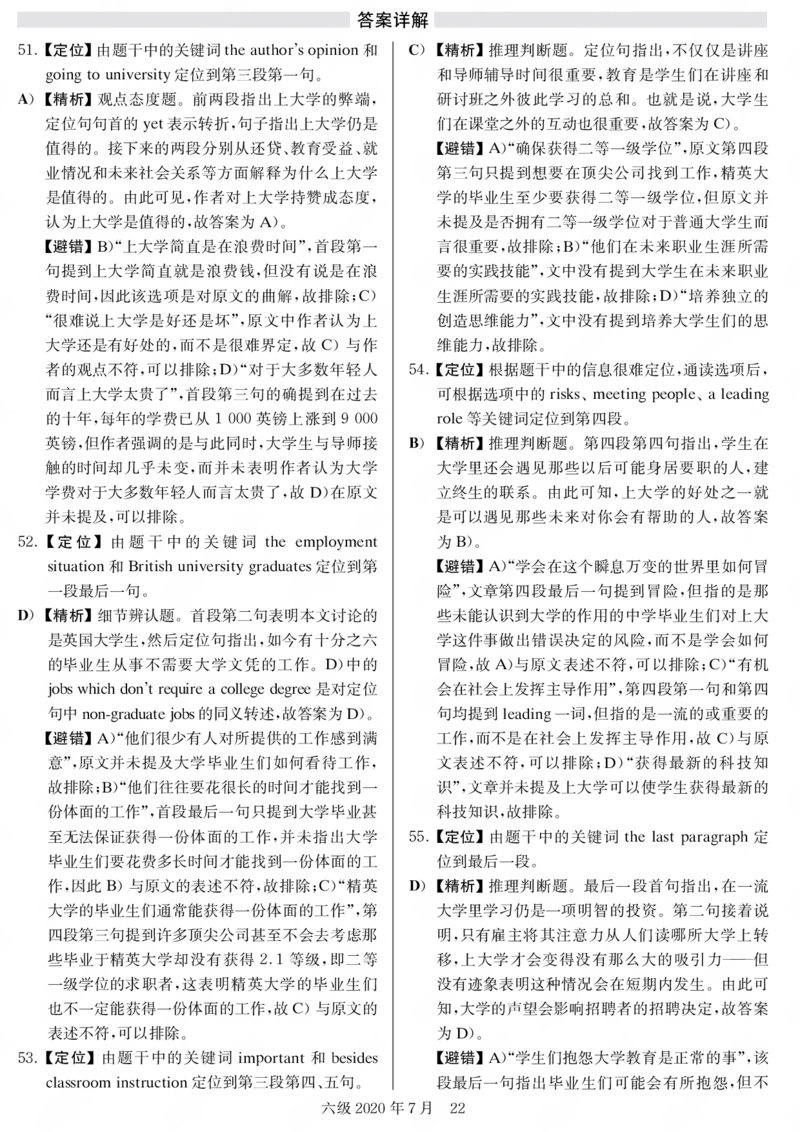 答案详解
51.【定位】由题干中的关键词 the author's opinion 和
going to university 定位到第三段第一句。
A）【精析】观点态度题。前两段指出上大学的弊端，
定位句句首的 yet 表示转折，句子指出上大学仍是
值得的。接下来的两段分别从还贷、教育受益、就
业情况和未来社会关系等方面解释为什么上大学
是值得的。由此可见，作者对上大学持赞成态度，
认为上大学是值得的，故答案为 A）。
【避错】B）“上大学简直是在浪费时间”，首段第一
句提到上大学简直就是浪费钱，但没有说是在浪
费时间，因此该选项是对原文的曲解，故排除；C）
“很难说上大学是好还是坏”，原文中作者认为上
大学还是有好处的，而不是很难界定，故 C）与作
者的观点不符，可以排除；D）“对于大多数年轻人
而言上大学太贵了”，首段第三句的确提到在过去
的十年，每年的学费已从 1 000 英镑上涨到 9 000
英镑，但作者强调的是与此同时，大学生与导师接
触的时间却几乎未变，而并未表明作者认为大学
学费对于大多数年轻人而言太贵了，故 D）在原文
并未提及，可以排除。
52.【定位】由题干中的关键词 the employment
situation 和 British university graduates 定位到第
一段最后一句。
D）【精析】细节辨认题。首段第二句表明本文讨论的
是英国大学生，然后定位句指出，如今有十分之六
的毕业生从事不需要大学文凭的工作。D）中的
jobs which don't require a college degree 是对定位
句中 non-graduate jobs 的同义转述，故答案为 D）。
【避错】A）“他们很少有人对所提供的工作感到满
意”，原文并未提及大学毕业生们如何看待工作，
故排除；B）“他们往往要花很长的时间才能找到一
份体面的工作”，首段最后一句只提到大学毕业甚
至无法保证获得一份体面的工作，并未指出大学
毕业生们要花费多长时间才能找到一份体面的工
作，因此 B）与原文的表述不符，故排除；C）“精英
大学的毕业生们通常能获得一份体面的工作”，第
四段第三句提到许多顶尖公司甚至不会去考虑那
些毕业于精英大学却没有获得 2.1 等级，即二等
一级学位的求职者，这表明精英大学的毕业生们
也不一定能获得一份体面的工作，故 C）与原文的
表述不符，可以排除。
53.【定位】由题干中的关键词 important 和 besides
classroom instruction 定位到第三段第四、五句。
C）【精析】推理判断题。定位句指出，不仅仅是讲座
和导师辅导时间很重要，教育是学生们在讲座和
研讨班之外彼此学习的总和。也就是说，大学生
们在课堂之外的互动也很重要，故答案为 C）。
【避错】A）“确保获得二等一级学位”，原文第四段
第三句只提到想要在顶尖公司找到工作，精英大
学的毕业生至少要获得二等一级学位，但原文并
未提及是否拥有二等一级学位对于普通大学生而
言很重要，故排除；B）“他们在未来职业生涯所需
要的实践技能”，文中没有提到大学生在未来职业
生涯所需要的实践技能，故排除；D）“培养独立的
创造思维能力”，文中没有提到培养大学生们的思
维能力，故排除。
54.【定位】根据题干中的信息很难定位，通读选项后，
可根据选项中的 risks、meeting people、a leading
role 等关键词定位到第四段。
B）【精析】推理判断题。第四段第四句指出，学生在
大学里还会遇见那些以后可能身居要职的人，建
立终生的联系。由此可知，上大学的好处之一就
是可以遇见那些未来对你会有帮助的人，故答案
为 B）。
【避错】A）“学会在这个瞬息万变的世界里如何冒
险”，文章第四段最后一句提到冒险，但指的是那
些未能认识到大学的作用的中学毕业生们对上大
学这件事做出错误决定的风险，而不是学会如何
冒险，故 A）与原文表述不符，可以排除；C）“有机
会在社会上发挥主导作用”，第四段第一句和第四
句均提到 leading 一词，但指的是一流的或重要的
工作，而不是在社会上发挥主导作用，故 C）与原
文表述不符，可以排除；D）“获得最新的科技知
识”，文章并未提及上大学可以使学生获得最新的
科技知识，故排除。
55.【定位】由题干中的关键词 the last paragraph 定
位到最后一段。
D）【精析】推理判断题。最后一段首句指出，在一流
大学里学习仍是一项明智的投资。第二句接着说
明，只有雇主将其注意力从人们读哪所大学上转
移，上大学才会变得没有那么大的吸引力——但
没有迹象表明这种情况会在短期内发生。由此可
知，大学的声望会影响招聘者的招聘决定，故答案
为 D）。
【避错】A）“学生们抱怨大学教育是正常的事”，该
段最后一句指出毕业生们可能会有所抱怨，但不
六级 2020 年 7 月 22